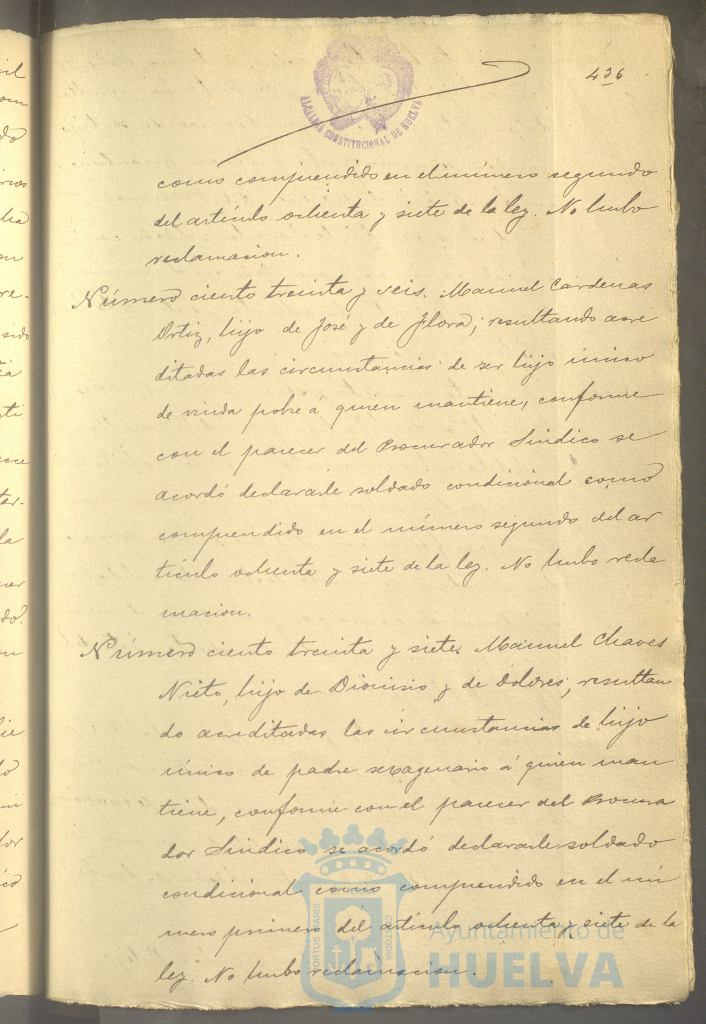 436
ALCALDIA CONSTITUCIONAL DE HUELVA
como comprendido en el número segundo
del artículo ochenta y siete de la ley. No hubo
reclamacion.
Número ciento treinta y seis. Manuel Cardenas
Ortiz, hijo de José y de Flora; resultando acre
ditadas las circunstancias de ser hijo único
de viuda pobre á quien mantiene, conforme
con el parecer del Procurador Sindico se
acordó declararle soldado condicional como
comprendido en el número segundo del ar
tículo ochenta y siete de la ley. No hubo recla
macion.
Número ciento treinta y siete. Manuel Chaves
Nieto, hijo de Dionisio y de Dolores, resultan
do acreditadas las circunstancias de hijo
único de padre sexagenario á quien man
tiene, conforme con el parecer del Procura
dor Sindico se acordó declararle soldado
condicional como comprendido en el nú
mero primero del artículo ochenta y siete de la
ley. No hubo reclamacion.
PORTUS MARIS CUSTODIA
Ayuntamiento de
HUELVA